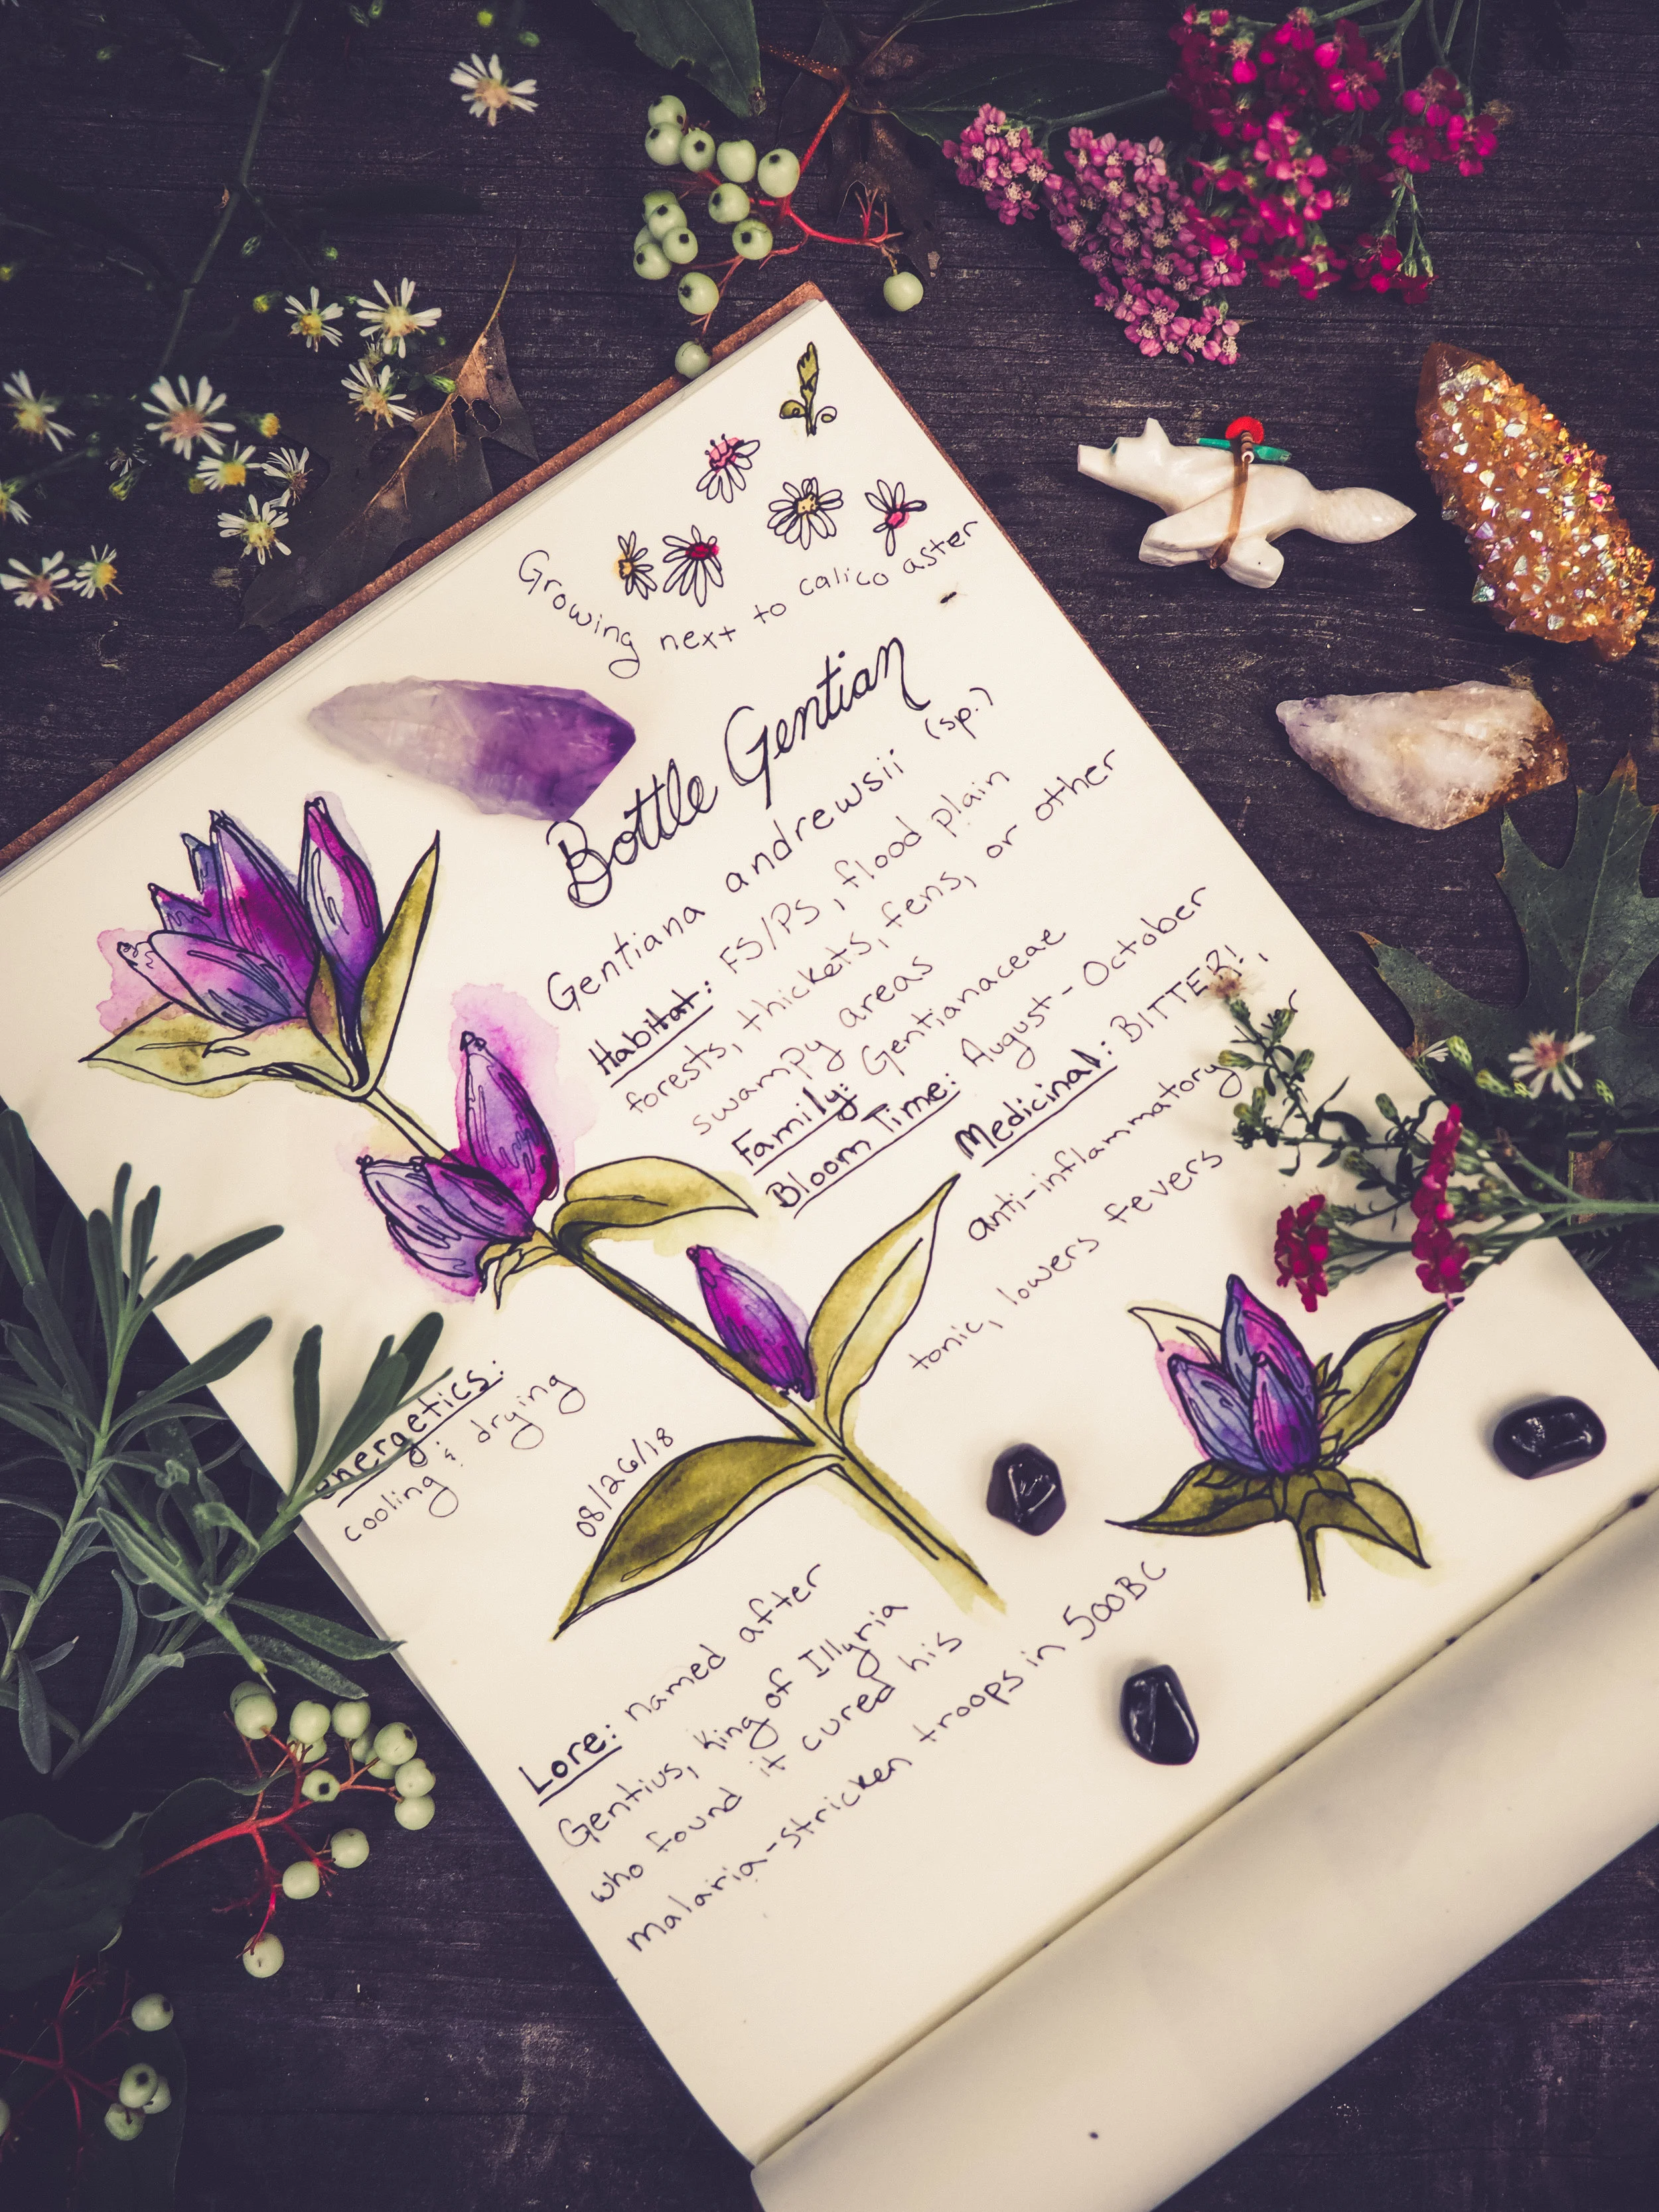 Growing next to calico aster
Bottle Gentian
Gentiana andrewsii (sp.)
Habitat: FS/PS, flood plain
forests, thickets, fens, or other
swampy areas
Family: Gentianaceae
Bloom Time: August - October
Medicinal: BITTER!,
anti-inflammatory
tonic, lowers fevers
Energetics:
cooling & drying
08/26/18
Lore: named after
Gentius, King of Illyria
who found it cured his
malaria-stricken troops in 500BC